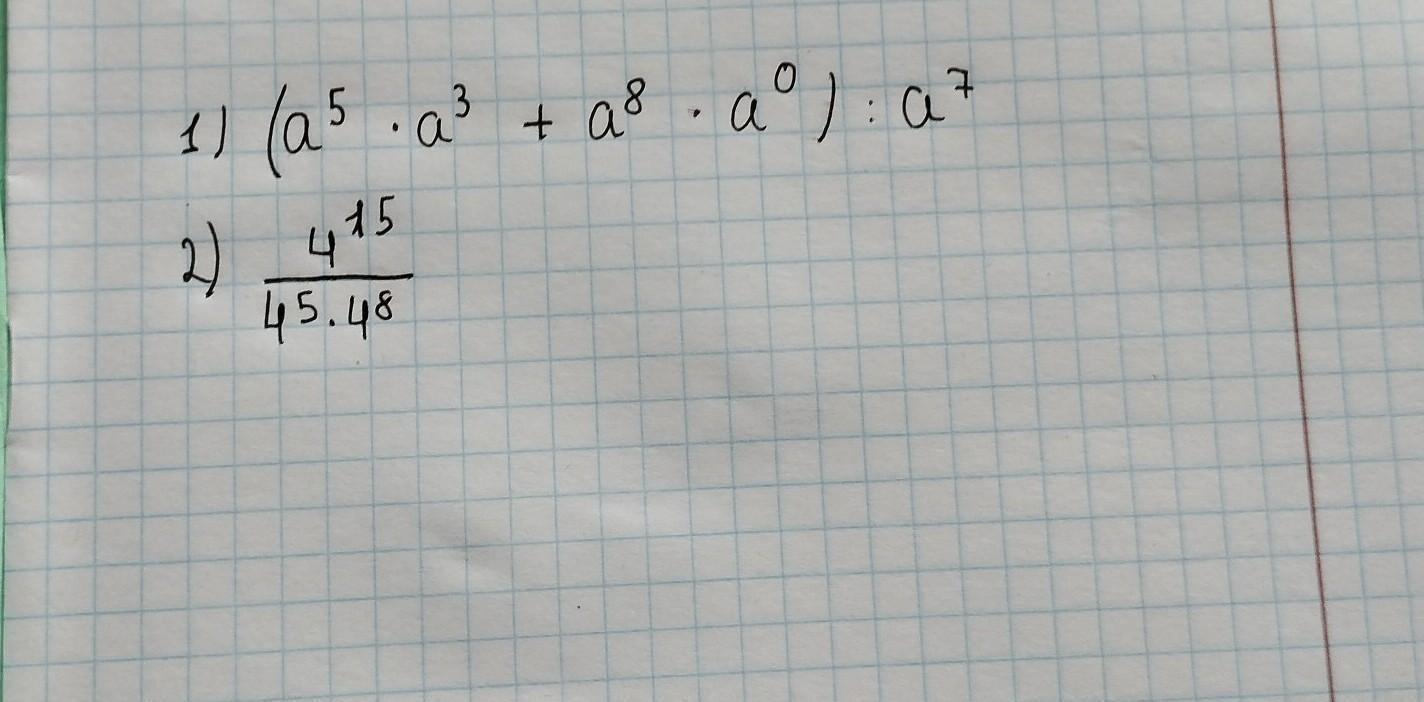 1) (a⁵ · a³ + a⁸ · a⁰) : a⁷
2) 4¹⁵
4⁵ · 4⁸